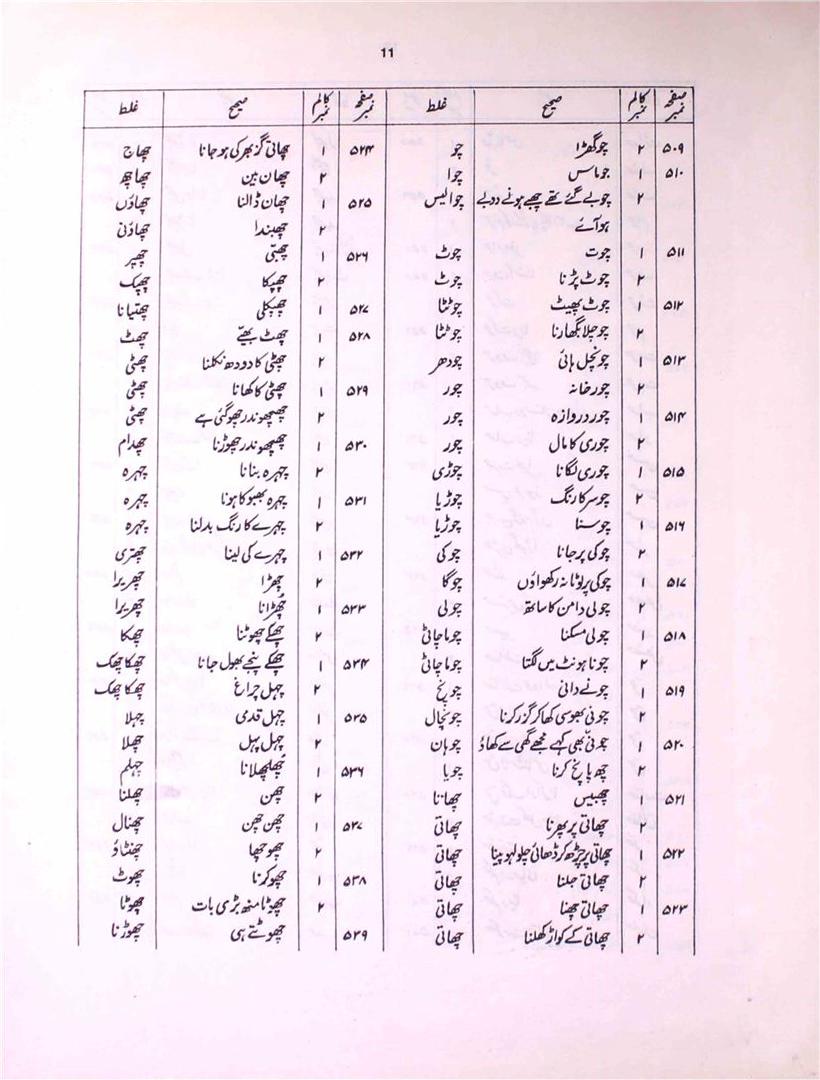 11
صفحہ نمبر کالم نمبر صحیح غلط صفحہ نمبر کالم نمبر صحیح غلط
۵۰۹ ۲ چوگھڑا چو ۵۲۴ ۱ چھاتی گز بھر کی ہو جانا چھاج
۵۱۰ ۱ چوماس چوا ۲ چھان بین چھاچھ
۲ چوبے گئے تھے چھبے ہونے دوبے چوالیس ۵۲۵ ۱ چھان ڈالنا چھاؤں
ہو آئے ۲ چھبندا چھاؤنی
۵۱۱ ۱ چوت چوٹ ۵۲۶ ۱ چھپّی چھپر
۲ چوٹ پڑنا چوٹ ۲ چھپکا چھپک
۵۱۲ ۱ چوٹ پھیٹ چوٹٹا ۵۲۷ ۱ چھپکلی چھتیانا
۲ چوچلا بگھارنا چوٹٹا ۵۲۸ ۱ چھٹ بھیّے چھٹ
۵۱۳ ۱ چونچل ہائی چودھر ۲ چھٹی کا دودھ نکلنا چھٹی
۲ چور خانہ چور ۵۲۹ ۱ چھٹی کا کھانا چھٹی
۵۱۴ ۱ چور دروازہ چور ۲ چھچھوندر چھو گئی ہے چھٹی
۲ چوری کا مال چور ۵۳۰ ۱ چھچھوندر چھوڑنا چھدام
۵۱۵ ۱ چوری لگانا چوڑی ۲ چہرہ بنانا چہرہ
۲ چوسر کا رنگ چوڑیا ۵۳۱ ۱ چہرہ بھبوکا ہونا چہرہ
۵۱۶ ۱ چوسنا چوڑیا ۲ چہرے کا رنگ بدلنا چہرہ
۲ چوکی پر جانا چوکی ۵۳۲ ۱ چہرے کی لینا چھتری
۵۱۷ ۱ چوکی پر لوٹا نہ رکھواؤں چوگا ۲ چھڑا چھریرا
۲ چولی دامن کا ساتھ چولی ۵۳۳ ۱ چھڑانا چھریرا
۵۱۸ ۱ چولی مسکنا چوما چاٹی ۲ چھکے چھوٹنا چھکا
۲ چونا ہونٹ میں لگتا چوما چاٹی ۵۳۴ ۱ چھکے پنجے بھول جانا چھکا چھک
۵۱۹ ۱ چونے دانی چونچ ۲ چہل چراغ چھکا چھک
۲ چونی بھوسی کھا کر گزر کرنا چونچال ۵۳۵ ۱ چہل قدمی چہلا
۵۲۰ ۱ چونی بھی کہے مجھے گھی سے کھاؤ چوہان ۲ چہل پہل چھلا
۲ چھ پانچ کرنا چویا ۵۳۶ ۱ چُھلچھلانا چہلم
۵۲۱ ۱ چھبیس چھانا ۲ چھن چھلنا
۲ چھاتی پر بھرنا چھاتی ۵۳۷ ۱ چھن چھن چھنال
۵۲۲ ۱ چھاتی پر چڑھ کر ڈھائی چلو لہو پینا چھاتی ۲ چھوچھا چھنٹاؤ
۲ چھاتی جلنا چھاتی ۵۳۸ ۱ چھو کرنا چھوٹ
۵۲۳ ۱ چھاتی چھننا چھاتی ۲ چھوٹا منھ بڑی بات چھوٹا
۲ چھاتی کے کواڑ کھلنا چھاتی ۵۳۹ چھوٹتے ہی چھوڑنا